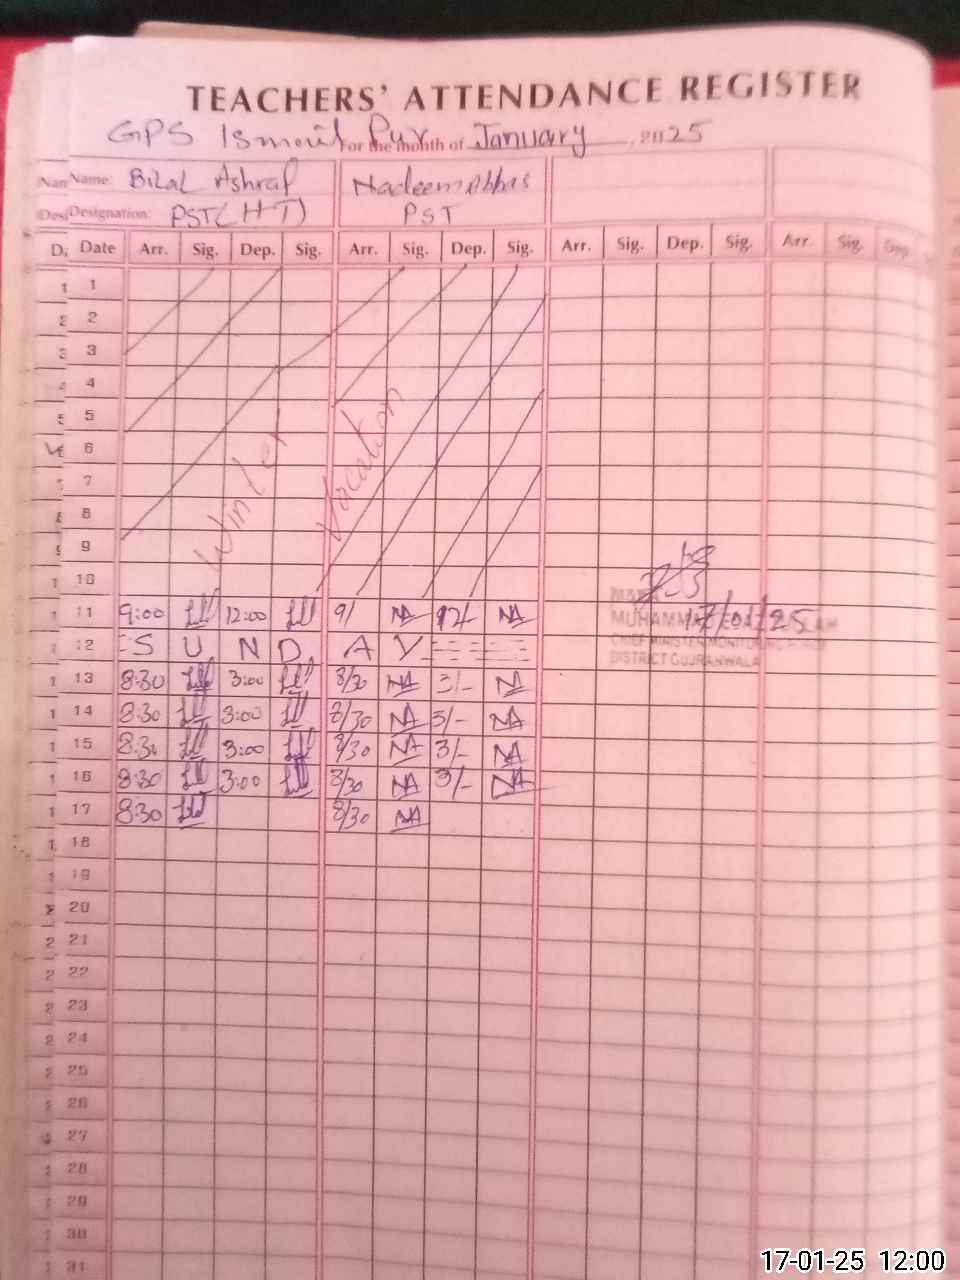 TEACHERS' ATTENDANCE REGISTER
GPS Ismail Pur For the month of January, 2025
Name: Bilal Ashraf Nadeem Abbas
Designation: PST(HT) PST
Date Arr. Sig. Dep. Sig. Arr. Sig. Dep. Sig. Arr. Sig. Dep. Sig. Arr. Sig. Dep.
1
2
3
4
5
6
7
8
9
10
Winter Vacation
11 9:00 12:00 9/ NA 12/ NA
12 S U N D A Y
13 8:30 3:00 8/30 NA 3/- NA
14 8:30 3:00 8/30 NA 3/- NA
15 8:30 3:00 8/30 NA 3/- NA
16 8:30 3:00 8/30 NA 3/- NA
17 8:30 8/30 NA
18
19
20
21
22
23
24
25
26
27
28
29
30
31
17/01/25
MUHAMMAD
CHIEF MINISTER MONITORING FORCE
DISTRICT GUJRANWALA
17-01-25 12:00